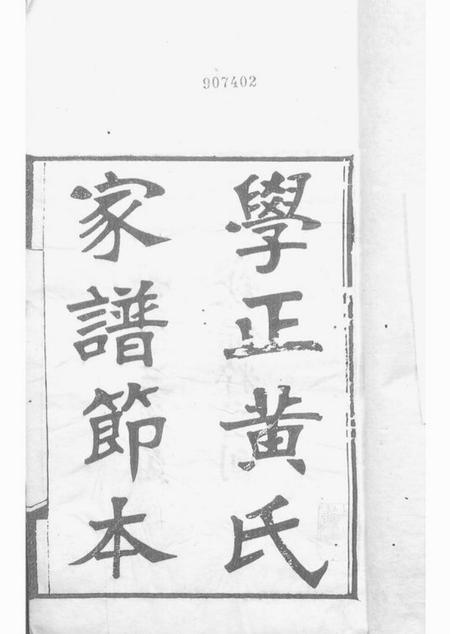 907402
學正黃氏
家譜節本